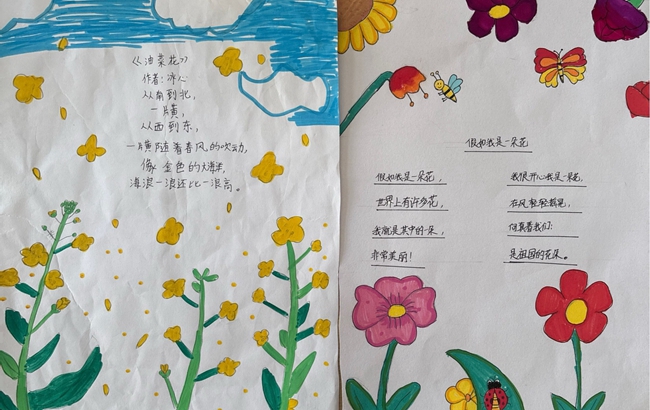 《油菜花》
作者：冰心
从南到北，
一片黄，
从西到东，
一片黄随着春风的吹动，
像金色的大海洋，
海浪一浪还比一浪高。
假如我是一朵花
假如我是一朵花，
世界上有许多花，
我就是其中的一朵，
非常美丽！
我很开心我是花，
在风轻轻
我们：
是祖国的花朵。